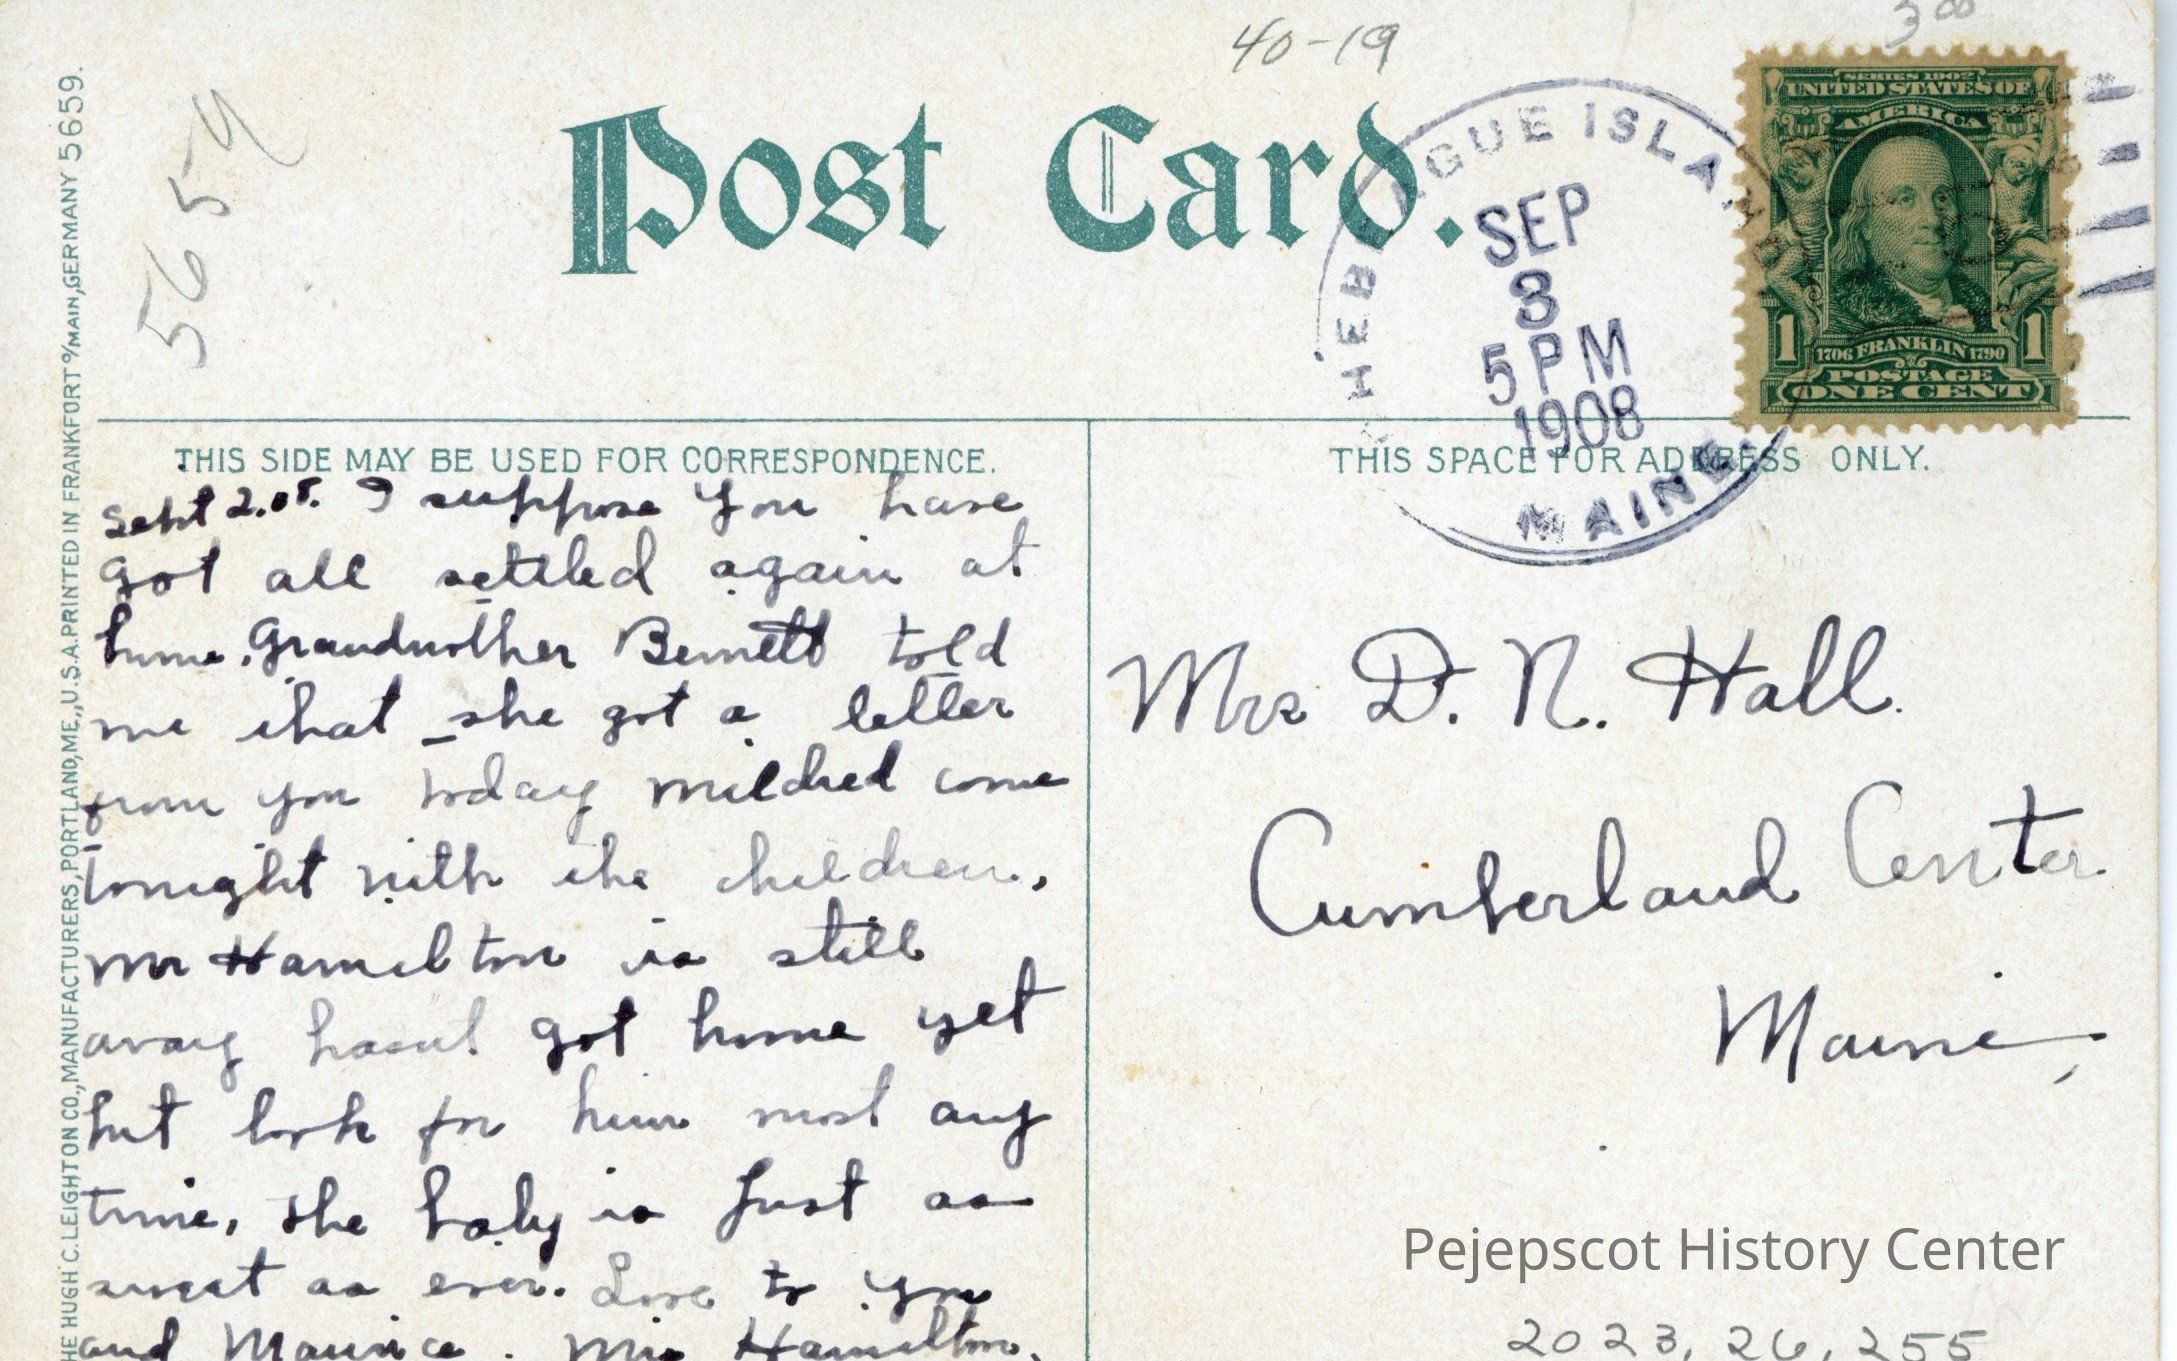 40-19
3 00
5659
Post Card.
CHEBEAGUE ISLAND
SEP
3
5 PM
1908
MAINE.
SERIES 1902
UNITED STATES OF
AMERICA
1 1706 FRANKLIN 1790 1
POSTAGE
ONE CENT
THE HUGH C. LEIGHTON CO., MANUFACTURERS, PORTLAND, ME., U.S.A. PRINTED IN FRANKFORT o/MAIN, GERMANY 5659.
THIS SIDE MAY BE USED FOR CORRESPONDENCE.
Sept 2.08. I suppose you have
got all settled again at
home. Grandmother Bennett told
me that she got a letter
from you today mildred come
tonight with the children,
Mr Hamilton is still
away hasnt got home yet
but look for him most any
time, the baby is Just as
sweet as ever. Love to you
and Maurice. Mrs Hamilton.
THIS SPACE FOR ADDRESS ONLY.
Mrs D. N. Hall.
Cumberland Center.
Maine,
Pejepscot History Center
2023, 26, 255